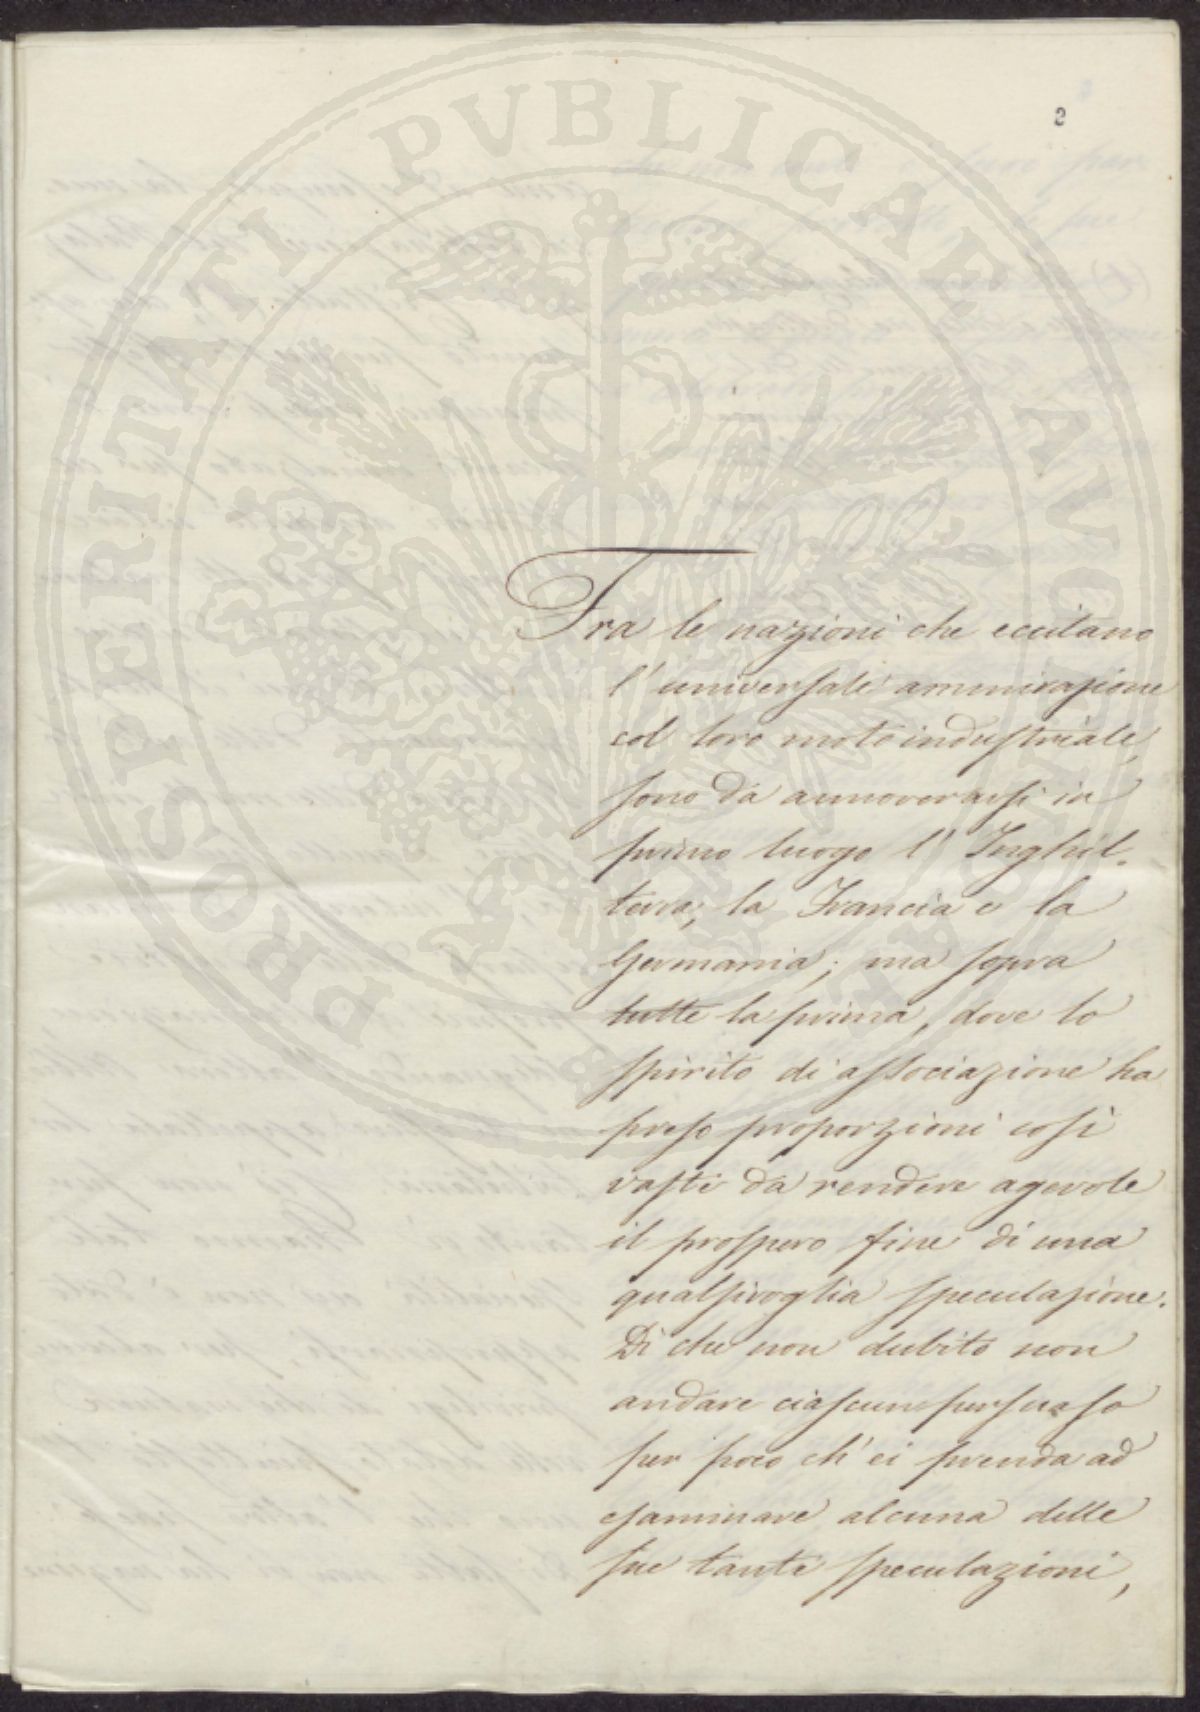 2
PROSPERITATI PVBLICAE AVGENDAE
Fra le nazioni che eccitano
l'universale ammirazione
col loro moto industriale,
sono da annoverarsi in
primo luogo l'Inghil-
terra, la Francia e la
Germania; ma sopra
tutte la prima, dove lo
spirito di associazione ha
preso proporzioni così
vasti da rendere agevole
il prospero fine di una
qualsivoglia speculazione.
Di che non dubito non
andare ciascun persuaso
per poco ch'ei prenda ad
esaminare alcuna delle
sue tante speculazioni,